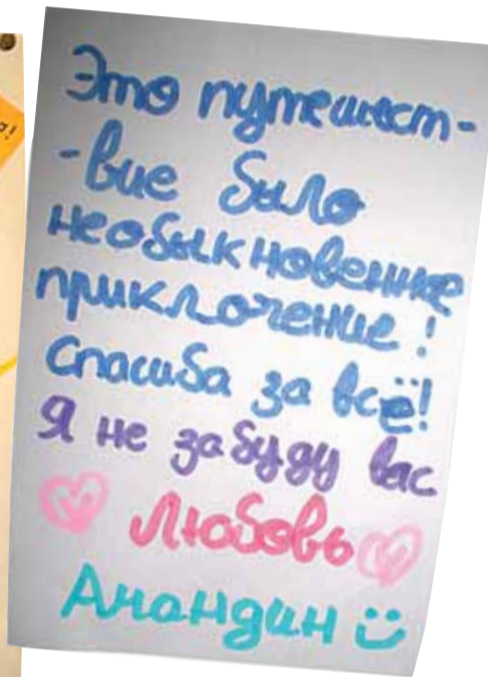 Это путешест-
-вие было
необыкновенне
приключение!
Спасиба за всё!
Я не забуду вас
Любовь
Амандин